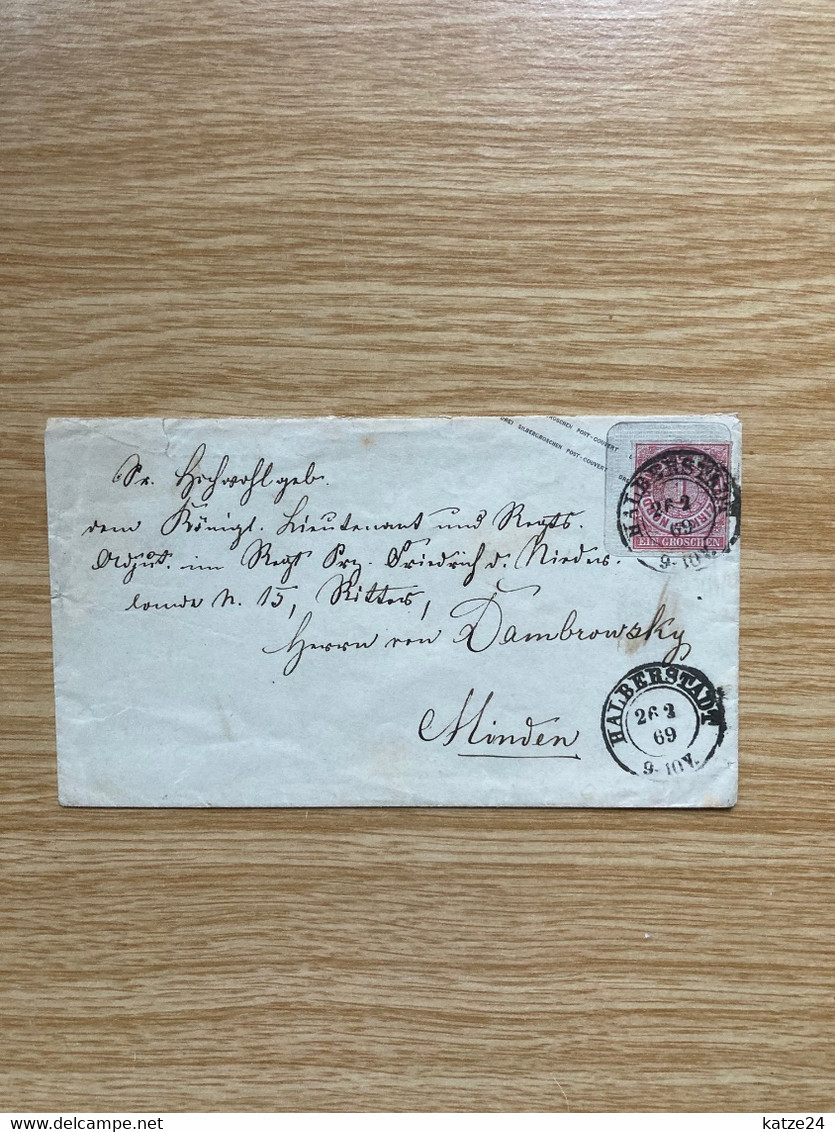 GROSCHEN POST-COUVERT
DREI SILBERGROSCHEN POST-COUVERT
HALBERSTADT
26 2
69
9-10V.
EIN GROSCHEN
Sr. Hochwohlgeb.
dem Königl. Lieutenant und Regts.
Adjut. im Regt Prz. Friedrich d. Nieder-
lande N. 15, Ritter,
Herrn von Dambrowsky
Minden
HALBERSTADT
26 2
69
9-10V.
katze24